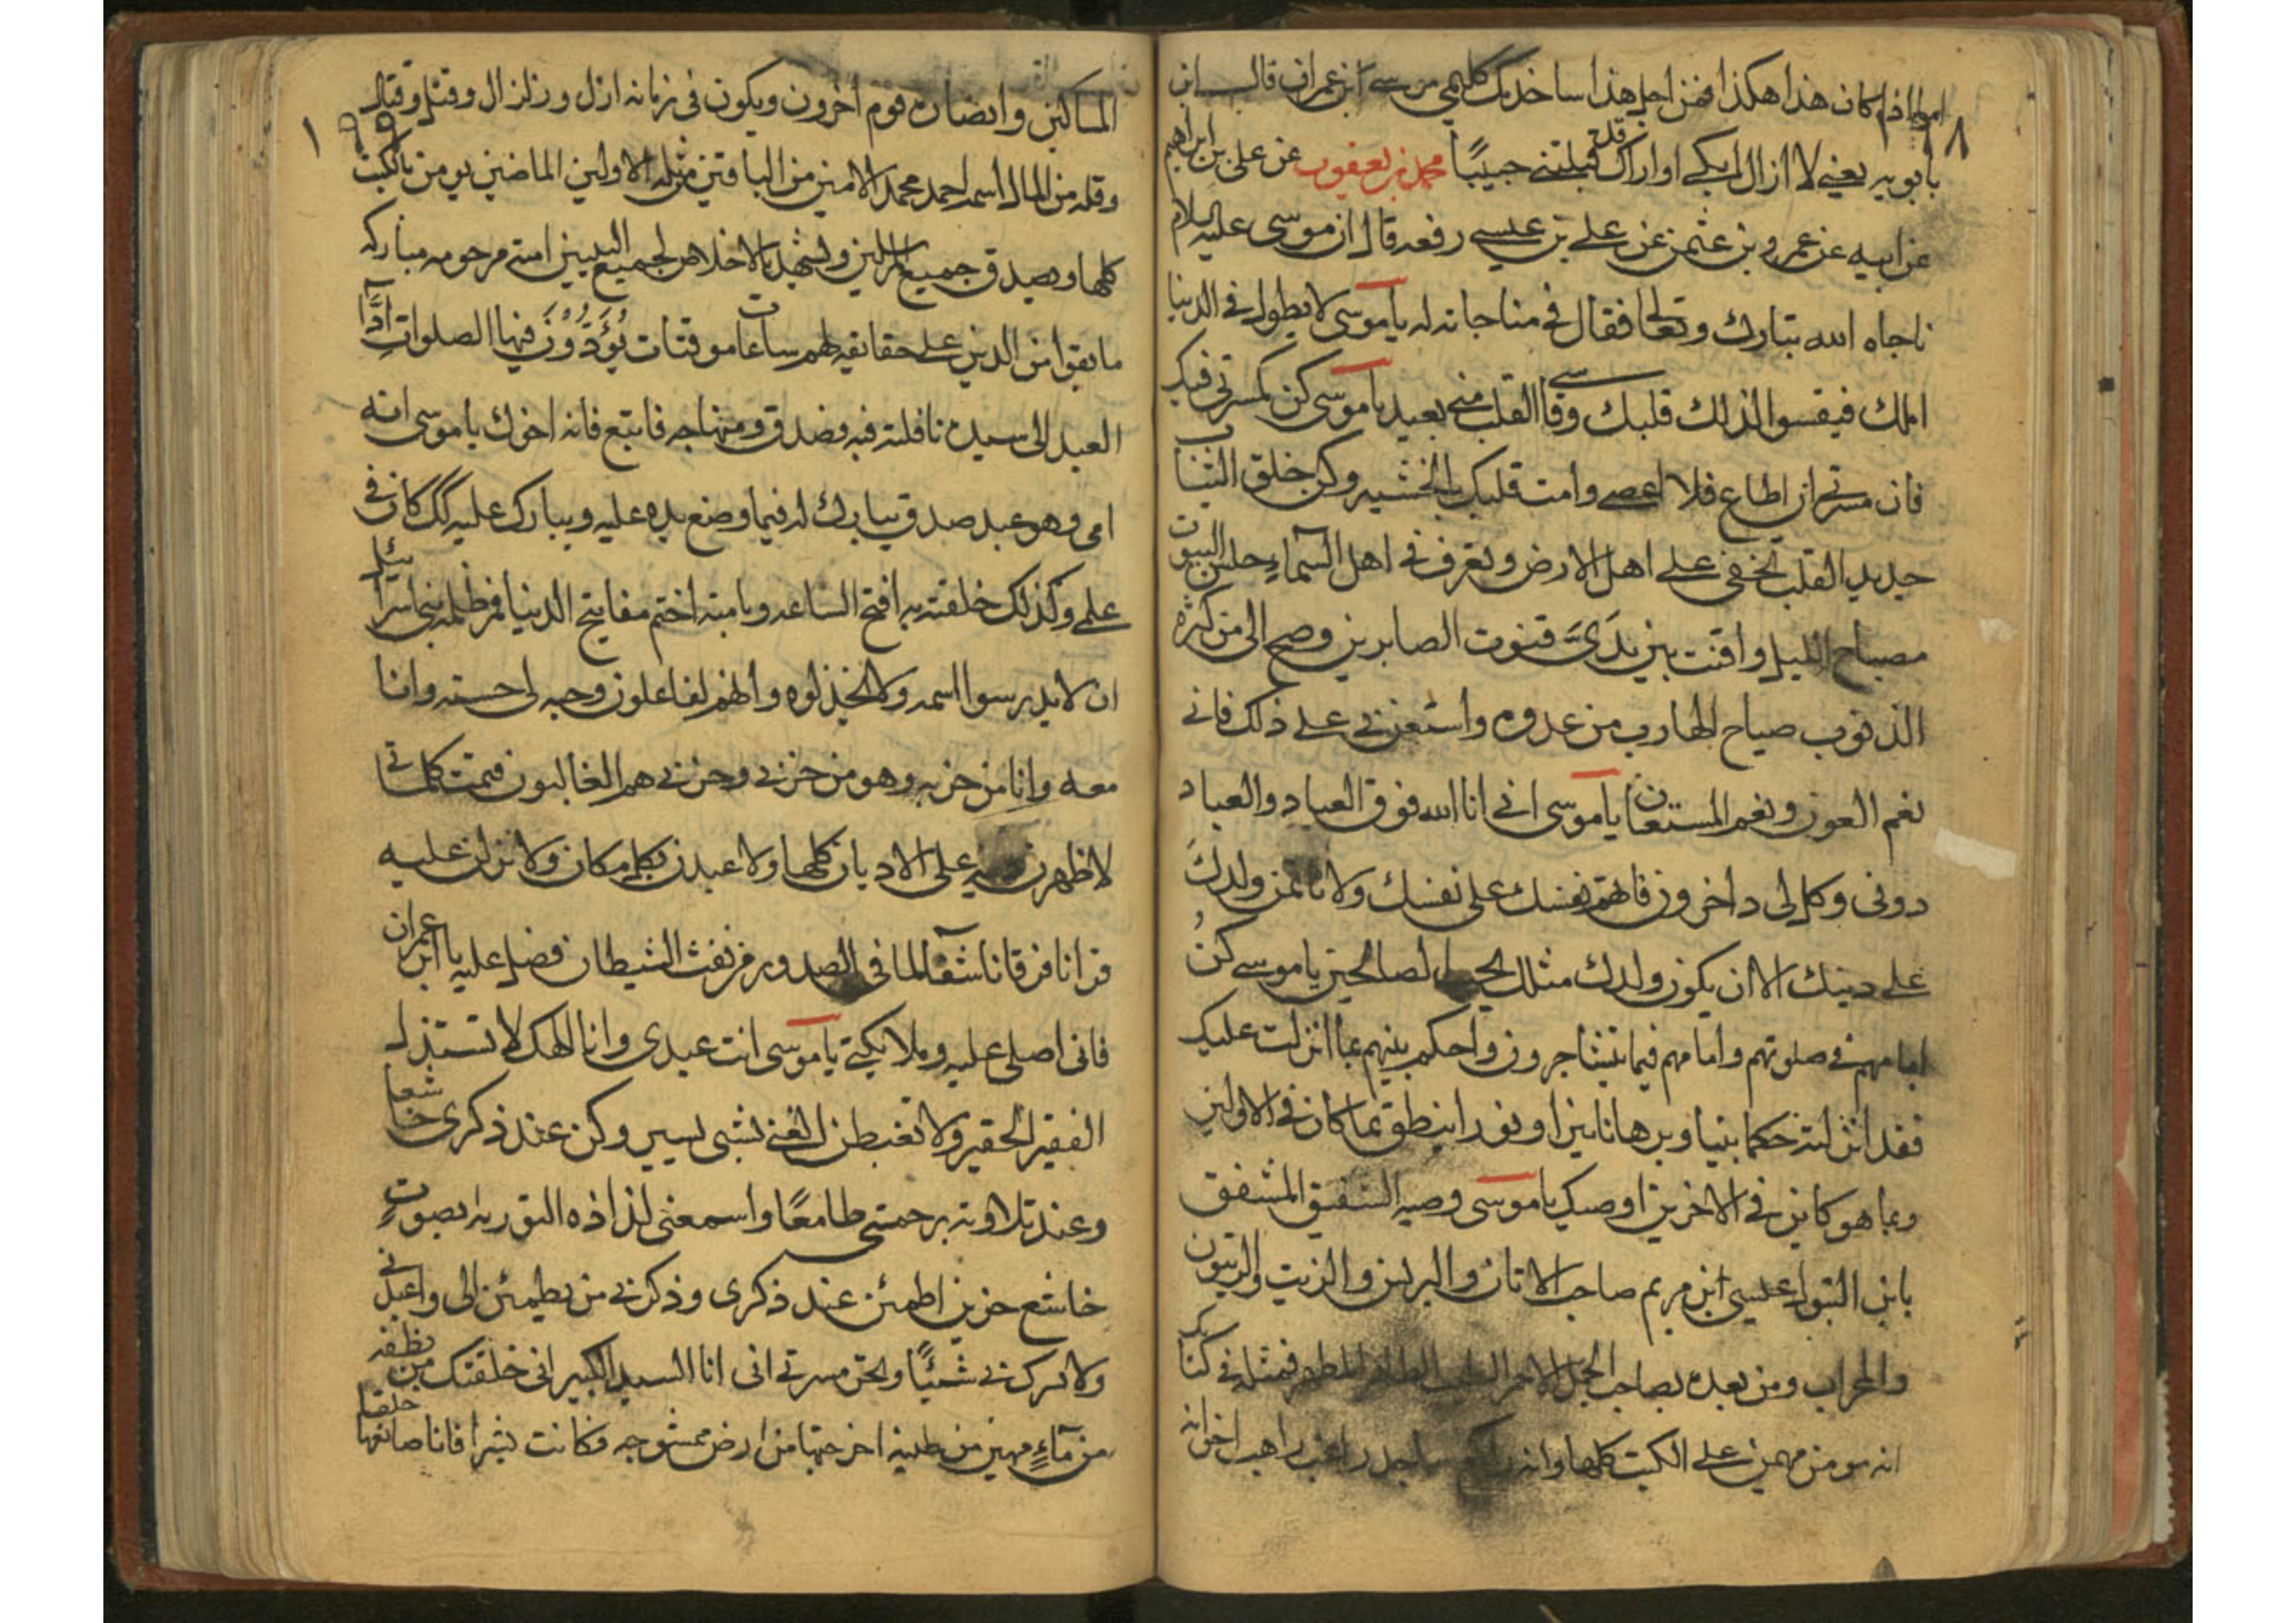 اما اذا كان هذا هكذا فمن اجل هذا ساخدمك كليمي موسى ابن عمران قال ابن
بابويه يعني لا ازال ابكي او اراك قد قبلتني حبيبًا محمد بن يعقوب عن علي بن ابراهيم
عن ابيه عن عمرو بن عثمن عن علي بن عيسى رفعه قال ان موسى عليه السلام
ناجاه الله تبارك وتعالى فقال في مناجاته له يا موسى لا يطول في الدنيا
املك فيقسوا لذلك قلبك وقاسي القلب مني بعيد يا موسى كن كمسرتي فيك
فان مسرتي ان اطاع فلا اعصى وامت قلبك بالخشيه وكن خلق الثياب
جديد القلب تخفى على اهل الارض وتعرف في اهل السماء حلس البيوت
مصباح الليل واقنت بين يدَيَّ قنوت الصابرين وصح الى من كثرة
الذنوب صياح الهارب من عدوه واستعن بي على ذلك فاني
نعم العون ونعم المستعان يا موسى اني انا الله فوق العباد والعباد
دوني وكل لي داخرون فاتهم نفسك على نفسك ولا تاتمن ولدكَ
على دينك الا ان يكون ولدك مثلك يحب الصالحين يا موسى كنُ
امامهم في صلوتهم وامامهم فيما يتشاجرون واحكم بينهم بما انزلت عليك
فقد انزلته حكما بينا وبرهانا نيرا ونورا ينطق بما كان في الاولين
وبما هو كاين في الاخرين اوصيك يا موسى وصيه الشفيق المشفق
بابن البتول عيسى ابن مريم صاحب الاتان والبرنس والزيت والزيتون
والمحراب ومن بعده بصاحب الجمل الاحمر الطيب الطاهر المطهر فمثله في كتابك
انه مومن مهيمن على الكتب كلها وانه راكع ساجد راغب راهب اخوانه
١٩٩
المساكين وانصاره قوم اخرون ويكون في زمانه ازل وزلزال وقتل وقتال
وقله من المال اسمه احمد محمد الامين من الباقين من ثله الاولين الماضين يومن بالكتب
كلها ويصدق جميع المرسلين ويشهد بالاخلاص لجميع النبيين امته مرحومه مباركه
ما بقوا من الدين على حقائقه لهم ساعات موقتات يُؤَدُّوُنَ فيها الصلوات ادآء
العبد الى سيده نافلته فبه فصدق ومنهاجه فاتبع فانه اخوك يا موسى انه
امي وهو عبد صدق يبارك له فيما وضع يده عليه ويبارك عليه كك كان في
علمي وكذلك خلقته به افتح الساعه وبامته اختم مفاتيح الدنيا فمر ظلمه بني اسرائيل
ان لا يدرسوا اسمه ولا يخذلوه وانهم لفاعلون وحبه لي حسنه وانا
معه وانا من حزبه وهو من حزبي وحزبي هم الغالبون فتمت كلماتي
لاظهرن دينه على الاديان كلها ولاعبدن بكل مكان ولانزلن عليه
قرانا فرقانا شفآء لما في الصدور من نفث الشيطان فصل عليه يا ابن عمران
فاني اصلي عليه وملائكتي يا موسى انت عبدي وانا الهك لا تستذل
الفقير الحقير ولا تغبطن الغني بشي يسير وكن عند ذكري خاشعا
وعند تلاوته برحمتي طامعًا واسمعني لذاذه التوريه بصوتٍ
خاشع حزين اطمئن عند ذكري وذكر بي من يطمئن الي واعبدني
ولا تشرك بي شيئًا وتحر مسرتي اني انا السيد الكبير اني خلقتك من نطفه
من مآءٍ مهين من طينه اخرجتها من ارض ممشوجه فكانت بشرا فانا صانعها خلقا